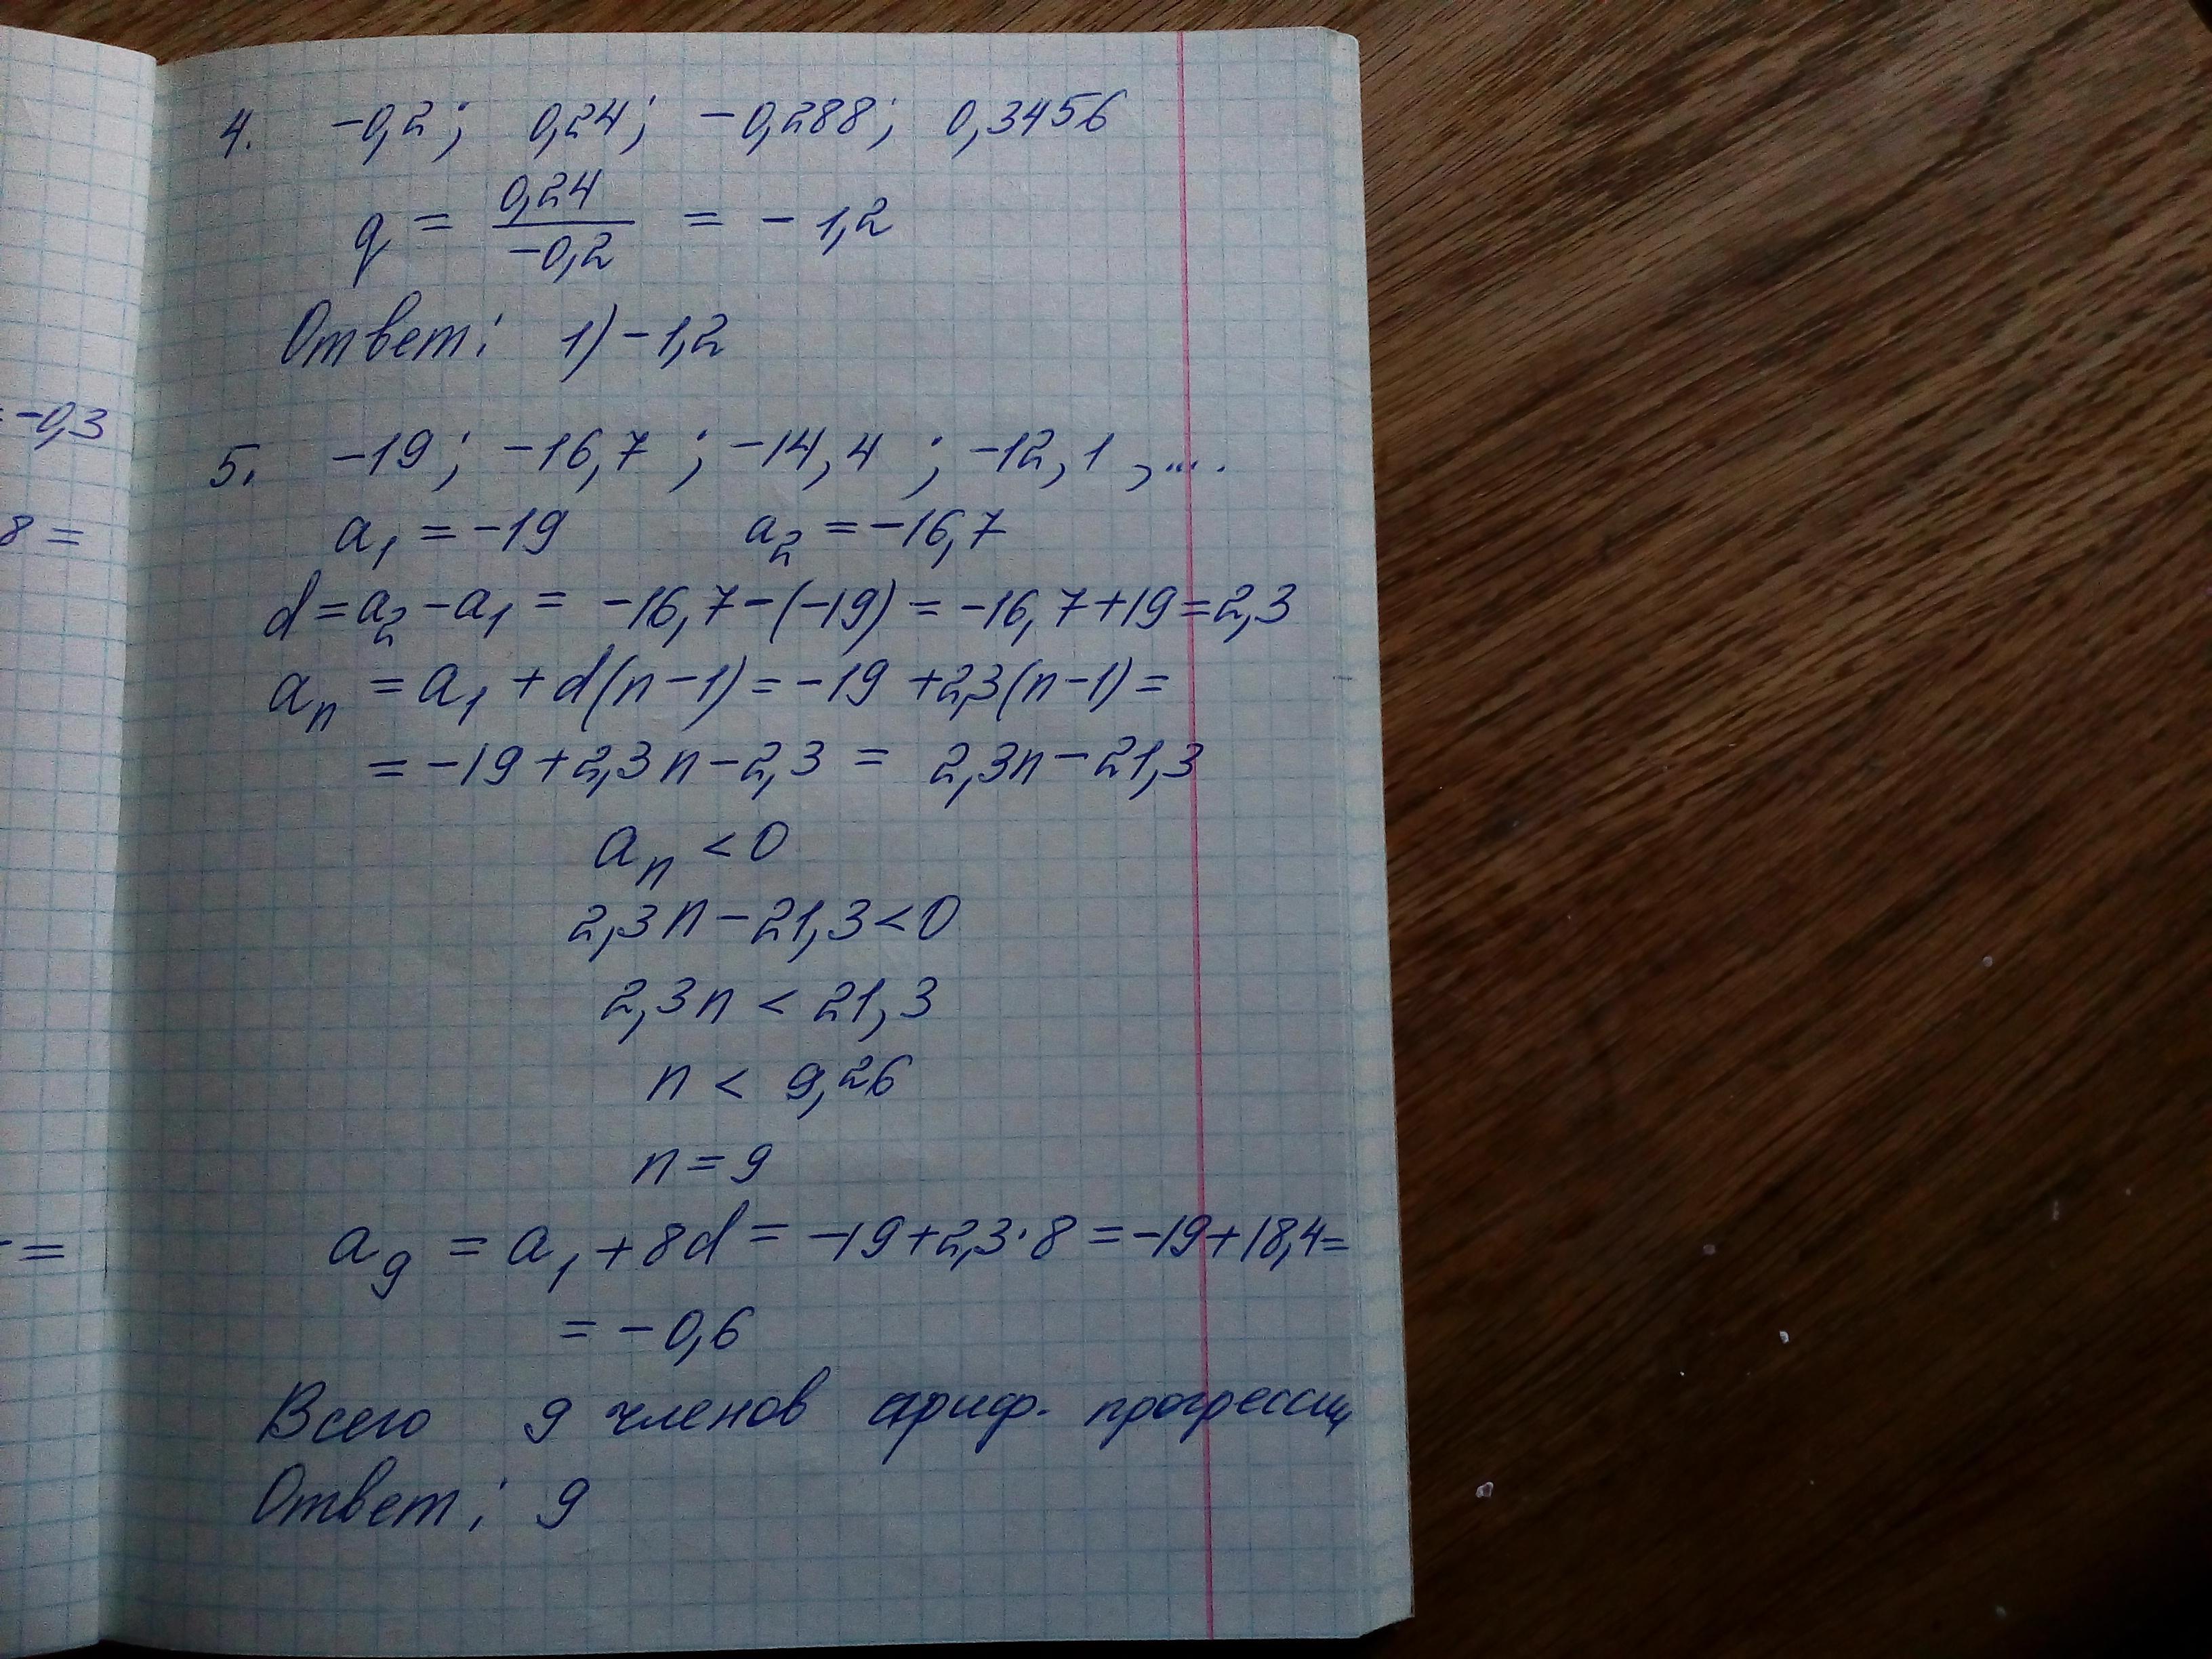 = -0,3
8 =
- =
4. -0,2; 0,24; -0,288; 0,3456
q = 0,24 / -0,2 = -1,2
Ответ: 1) -1,2
5. -19; -16,7; -14,4; -12,1,....
a₁ = -19 a₂ = -16,7
d = a₂ - a₁ = -16,7-(-19) = -16,7+19=2,3
aₙ = a₁ + d(n-1) = -19 + 2,3(n-1) =
= -19 + 2,3n - 2,3 = 2,3n - 21,3
aₙ < 0
2,3n - 21,3 < 0
2,3n < 21,3
n < 9,26
n = 9
a₉ = a₁ + 8d = -19+2,3·8 = -19+18,4=
= -0,6
Всего 9 членов ариф. прогрессии
Ответ: 9